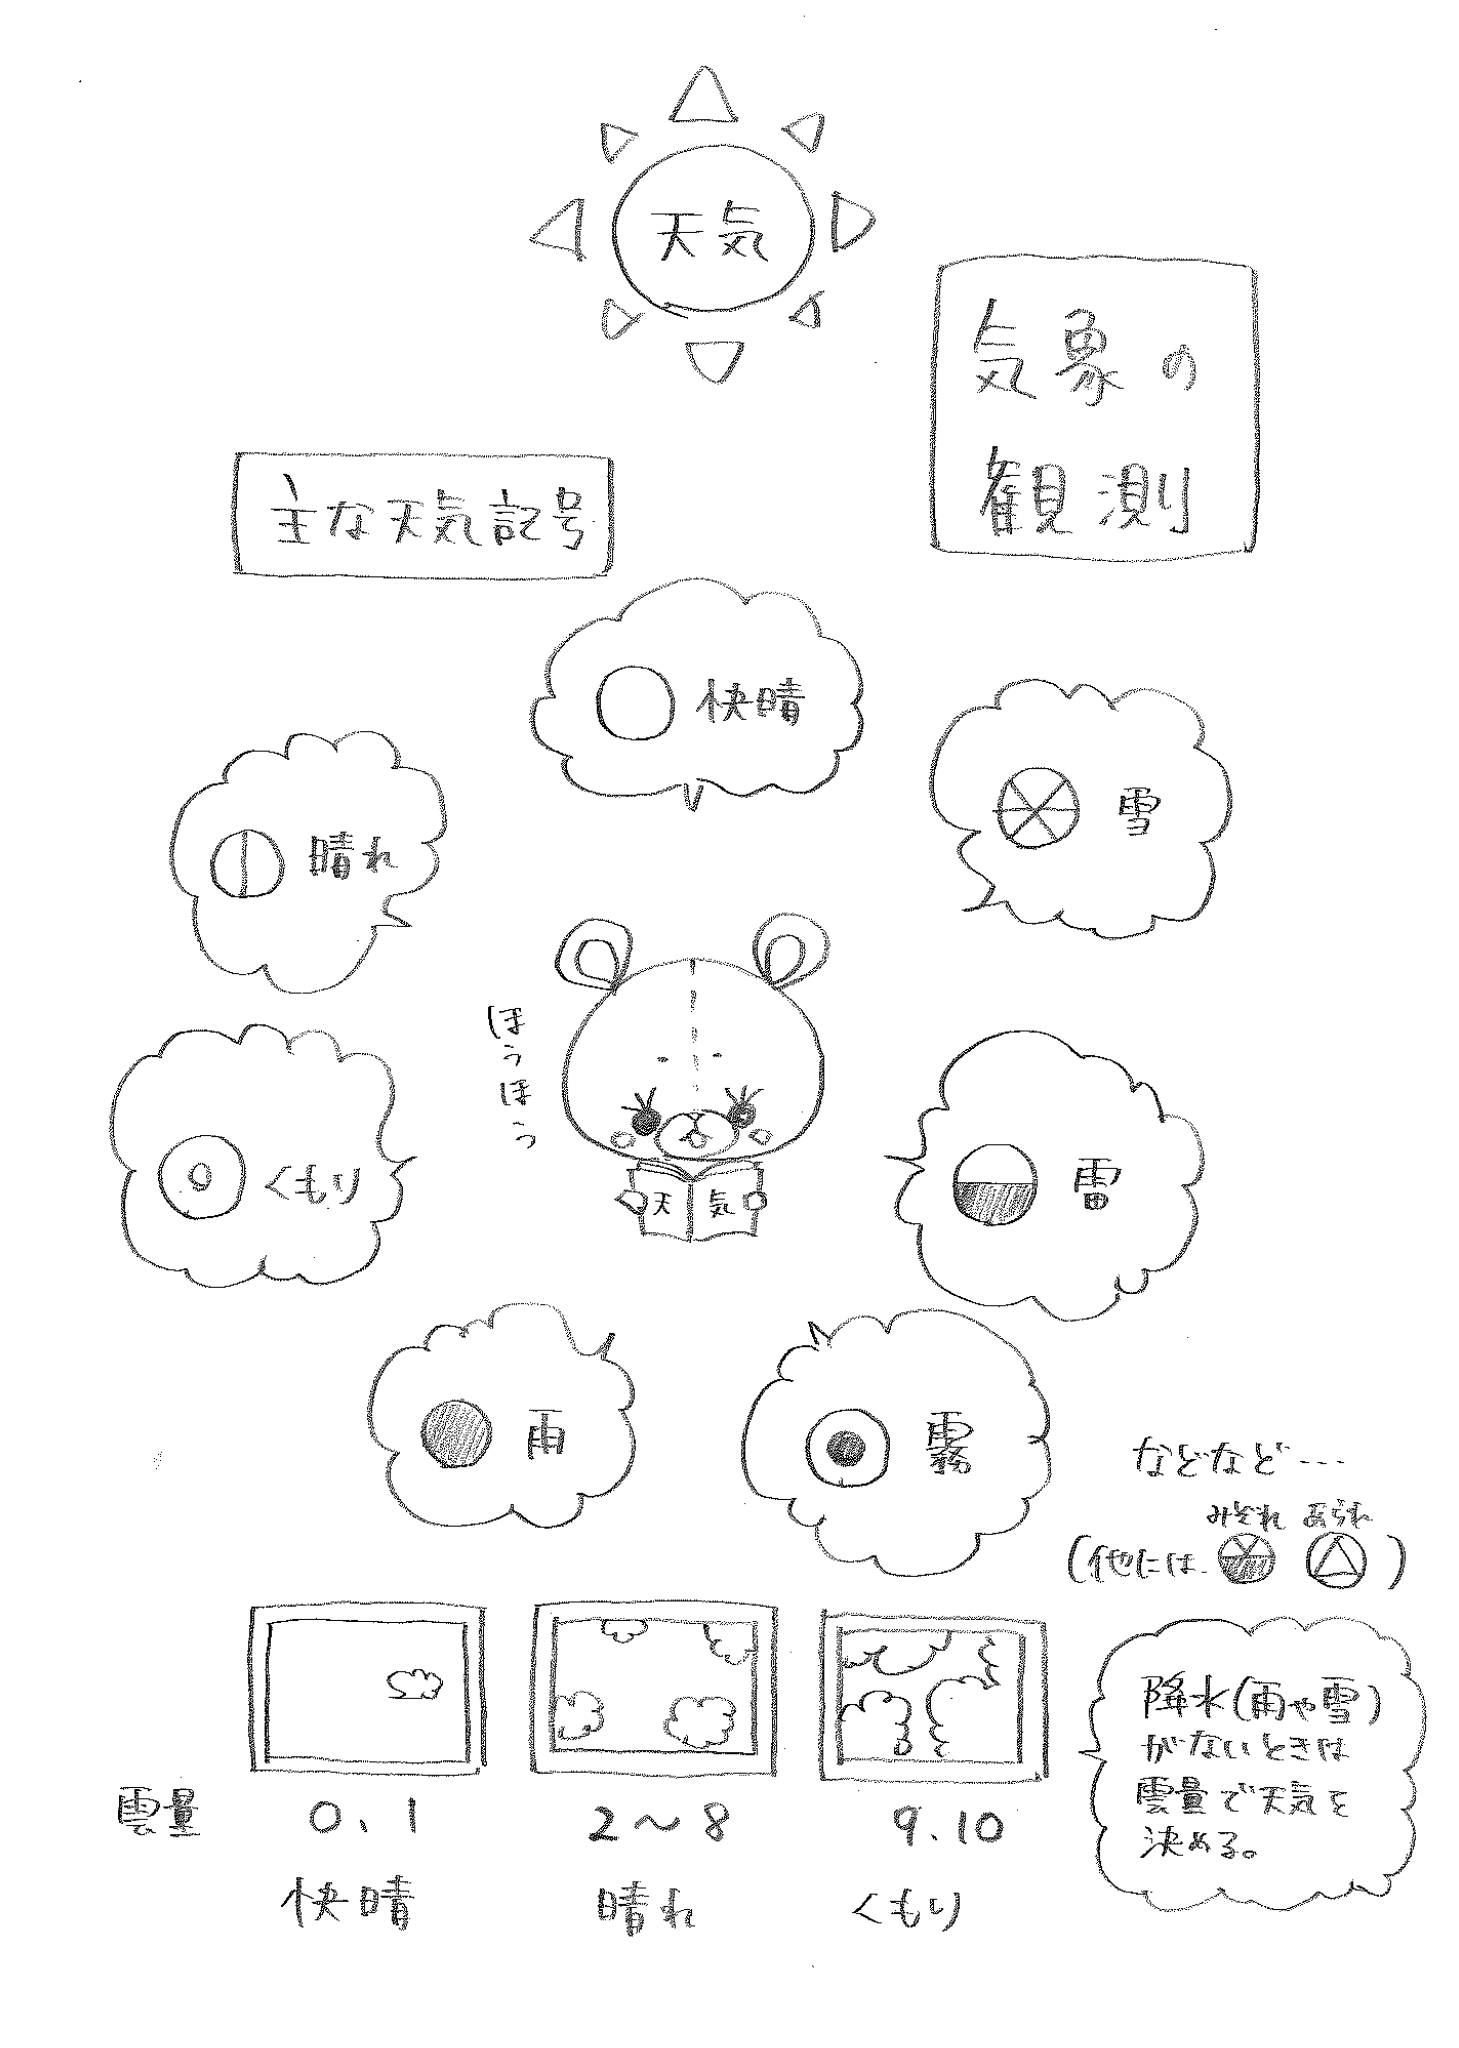 天気
気象の
観測
主な天気記号
快晴
晴れ
雪
くもり
ほうほう
天気
雷
雨
霧
などなど…
みぞれ あられ
(他には、)
降水(雨や雪)
がないときは
雲量で天気を
決める。
雲量 0、1 2～8 9、10
快晴 晴れ くもり